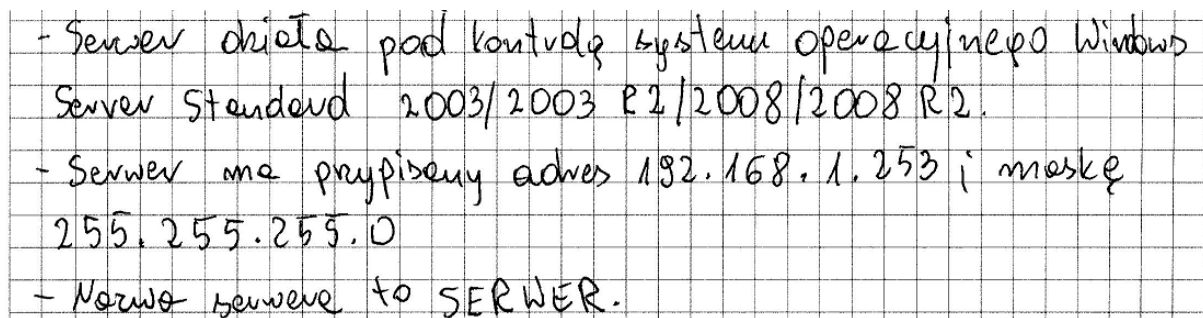 - Serwer działa pod kontrolą systemu operacyjnego Windows
Server Standard 2003/2003 R2/2008/2008 R2.
- Serwer ma przypisany adres 192.168.1.253 i maskę
255.255.255.0
- Nazwa serwera to SERWER.